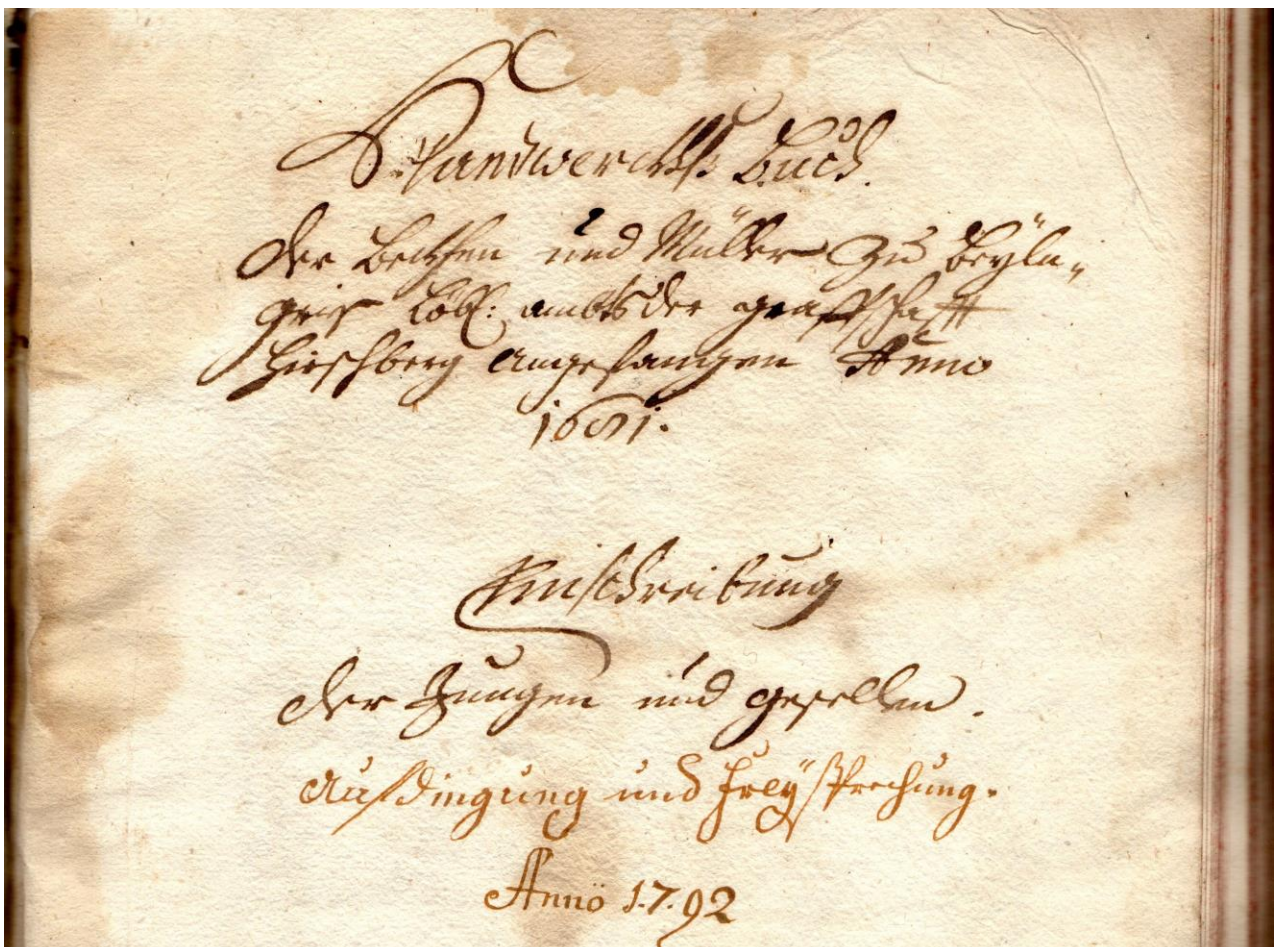 Handwerckhs Buch.
Der Beckhen und Müller Zu Beyln,,
griß Löbl: ambts der graffschafft
Hirschberg angefangen Anno
1681.
Einschreibung
der Jungen und gesellen.
Aufdingung und Freÿsprechung.
Anno 1.7.92